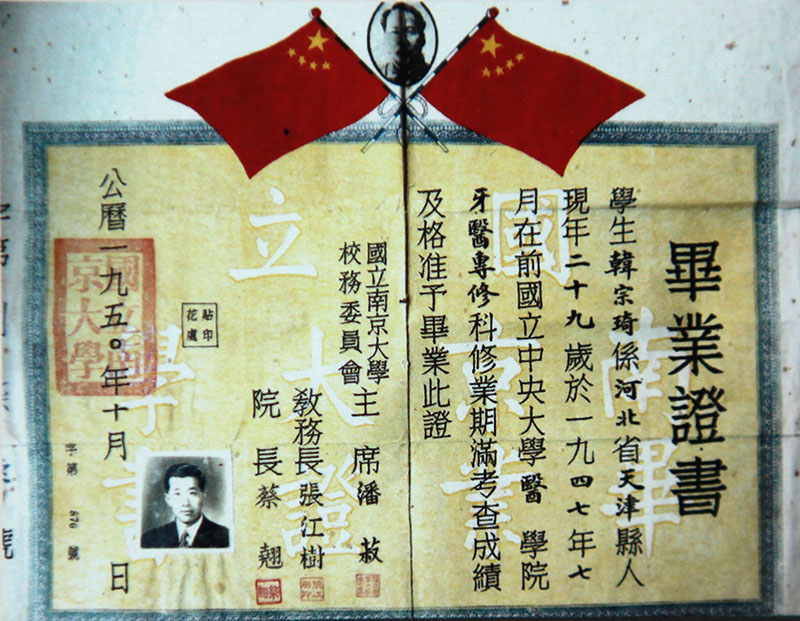 畢業證書
學生韓宗琦係河北省天津縣人
現年二十九歲於一九四七年七
月在前國立中央大學醫學院
牙醫專修科修業期滿考查成績
及格准予畢業此證
國立南京大學
校務委員會
主席潘菽
教務長張江樹
院長蔡翹
貼印
花處
公曆一九五〇年十月 日
字第 870 號
國立南京大學
畢業證書